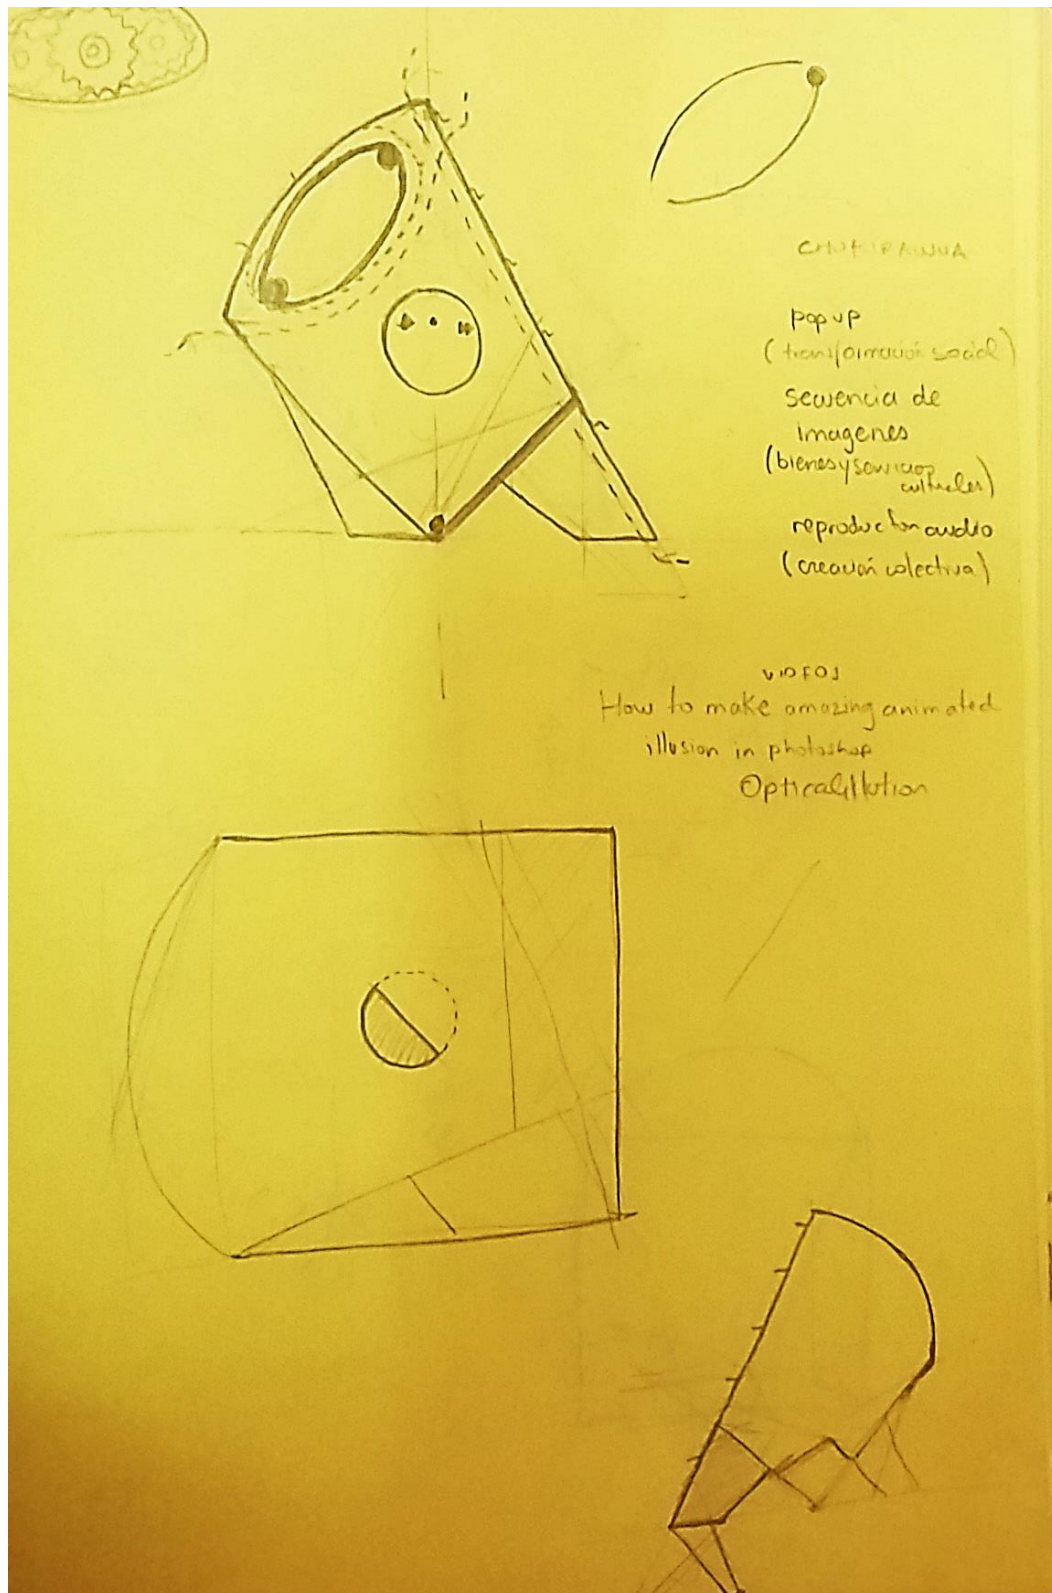 pop up
(transformación social)
secuencia de
imagenes
(bienes y servicios
culturales)
reproductor audio
(creación colectiva)
VIDEOS
How to make amazing animated
illusion in photoshop